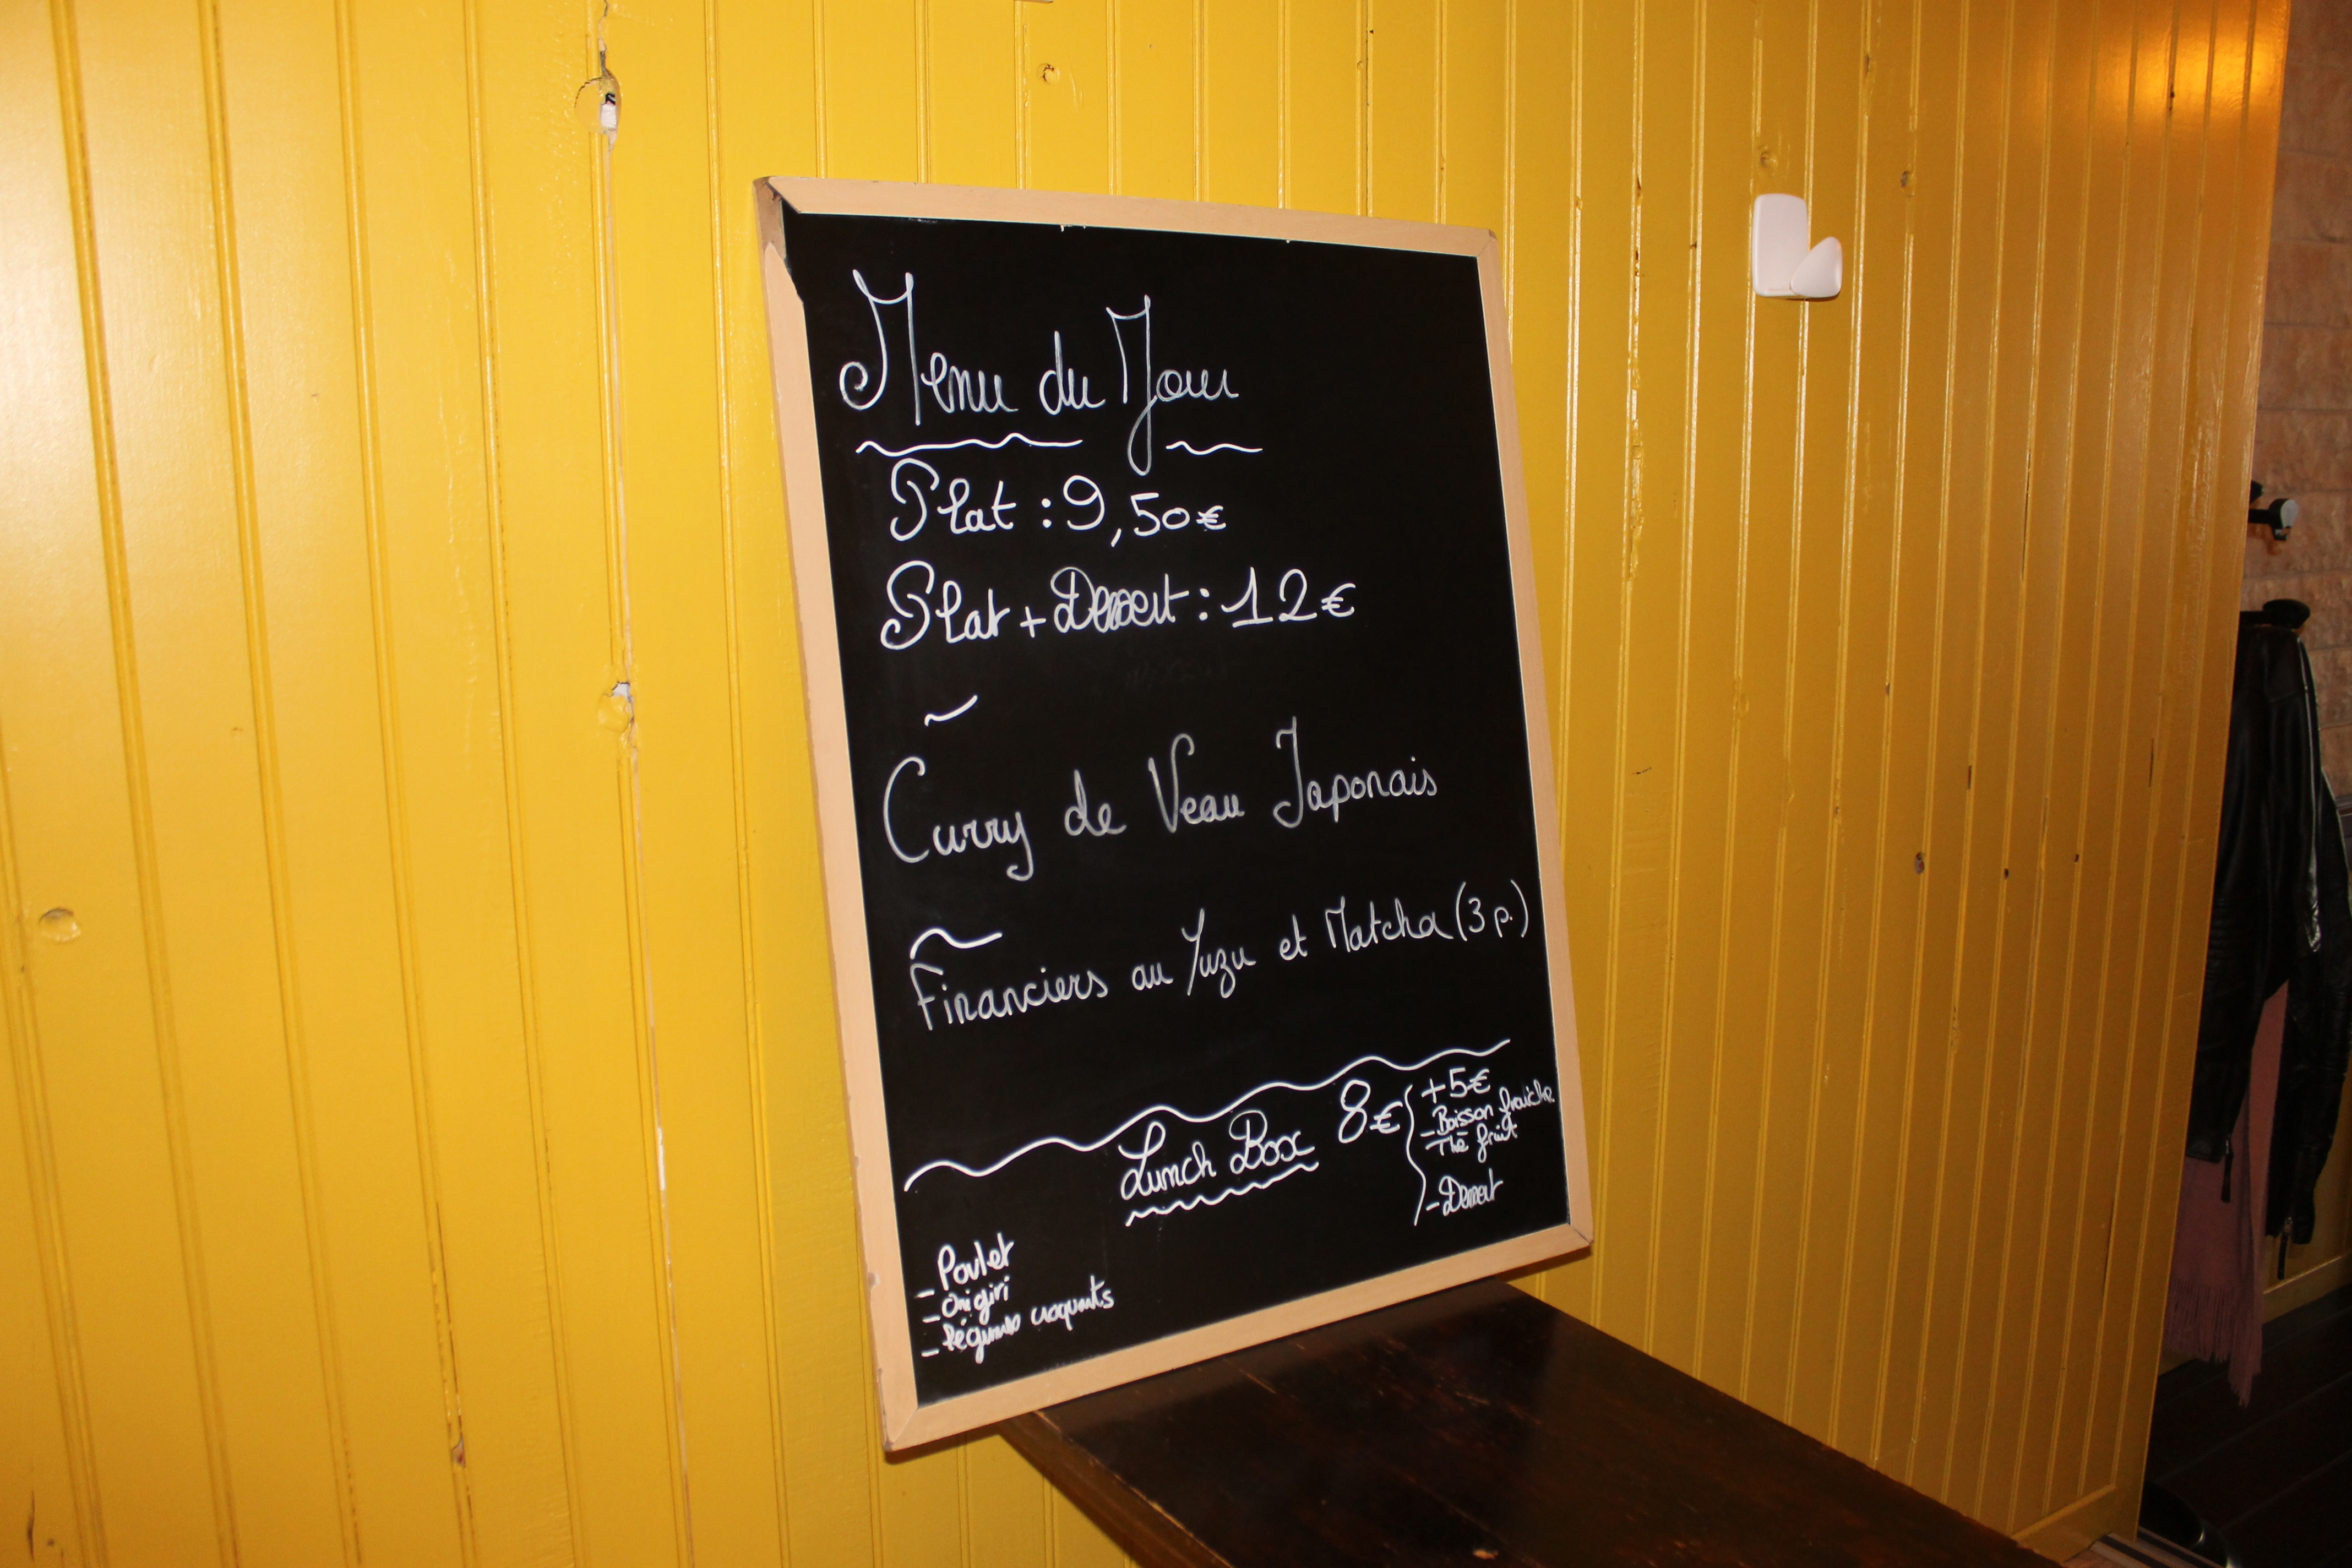 Menu du Jour
Plat : 9,50€
Plat + Dessert : 12€
Curry de Veau Japonais
Financiers au Yuzu et Matcha (3 p.)
Lunch Box 8€
+5€
- Boisson fraîche
Thé fruit
- Dessert
- Poulet
- Onigiri
- légumes croquants